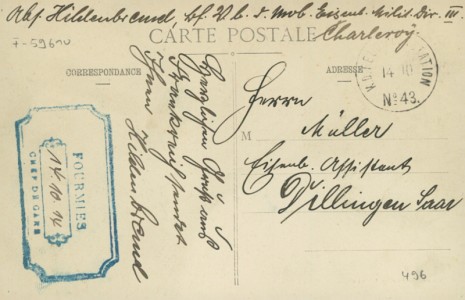 Abs. Hildenbrand, Bf. V. b. d. Mob. Eisenb. Milit. Dir. III.
Charleroy.
F-5961N
CARTE POSTALE
CORRESPONDANCE
ADRESSE
14 10
STATION
No 43.
Herzlichen Gruß aus
Frankreich sendet
Ihnen
Hildenbrand
M
Herrn
Müller
Eisenb. Assistent
Dillingen Saar
FOURMIES
14.10.14
CHEF DE GARE
496